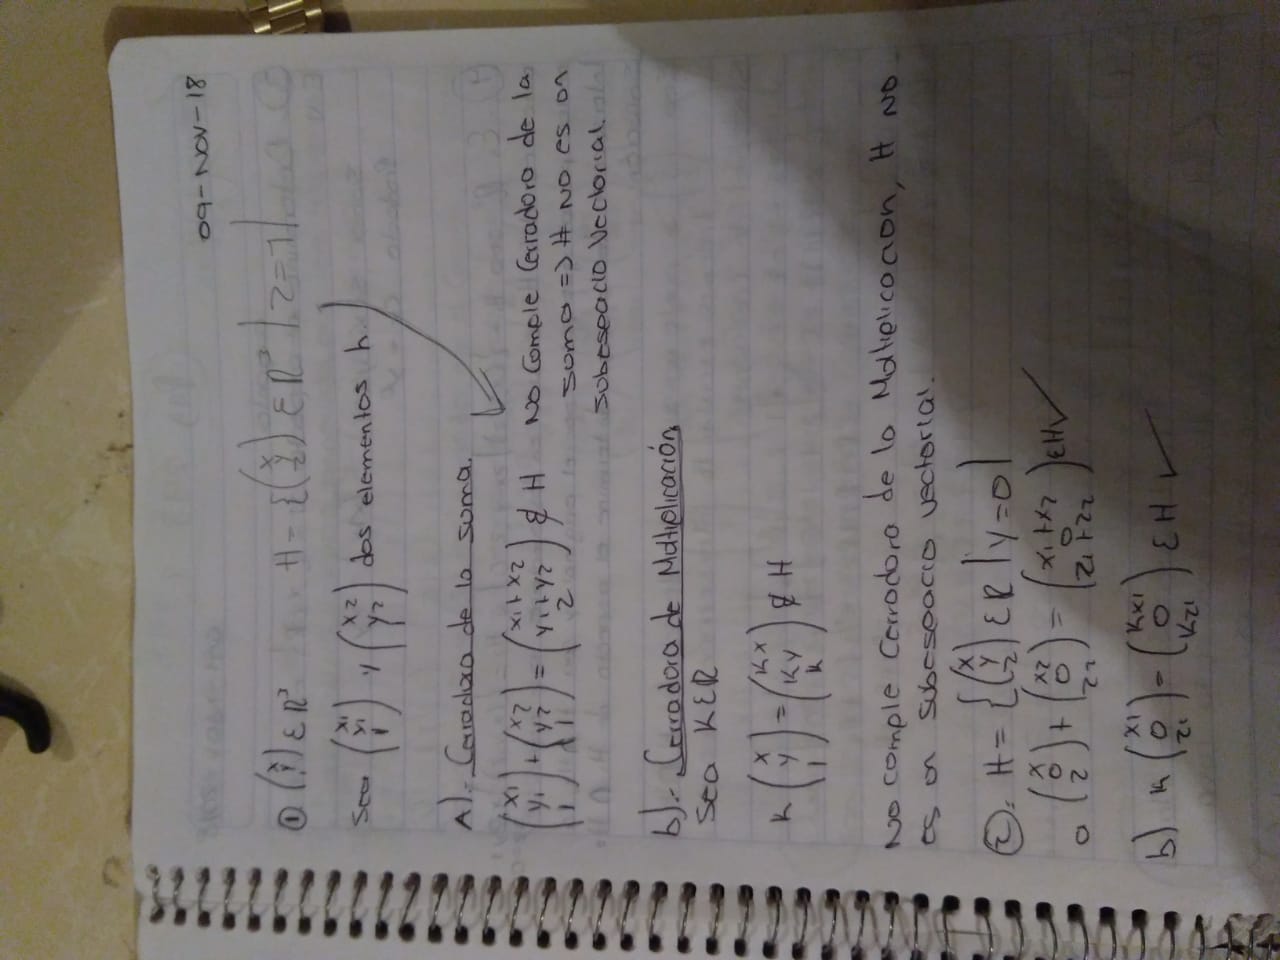 09-NOV-18
① (x y 1) ε ℝ³ H = {(x y z) ε ℝ³ | z = 1|
Sea (x1 y1 1) y (x2 y2 1) dos elementos h.
A).- Cerradora de la suma.
(x1 y1 1) + (x2 y2 1) = (x1+x2 y1+y2 2) ∉ H No Comple Cerradora de la
suma => H no es on
subespacio Vectorial.
b).- Cerradora de Moltiplicación.
Sea K ε ℝ
k (x y 1) = (kx ky k) ∉ H
No comple Cerradora de la Moltiplicacion, H no
es on subespacio vectorial.
②.- H = {(x y z) ε ℝ | y = 0|
a (x 0 z) + (x2 0 z2) = (x1+x2 0 z1+z2) ε H ✓
b) k (x1 0 z1) = (kx1 0 kz1) ε H ✓